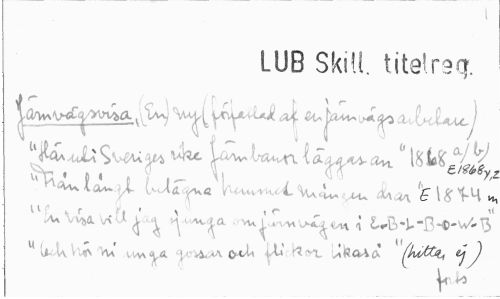 LUB Skill. titelreg.
Järnvägsvisa, (En) ny (författad af en järnvägsarbetare)
"Häruti Sveriges rike Järnbanor läggas an" 1868 a/b)
E1868y,z
"Från långt belägna hemmet mången drar" E 1874 m
"En visa vill jag sjunga om järnvägen i E-B-L-B-O-W-B"
"Och hör ni unga gossar och flickor likaså" (hittas ej)
forts